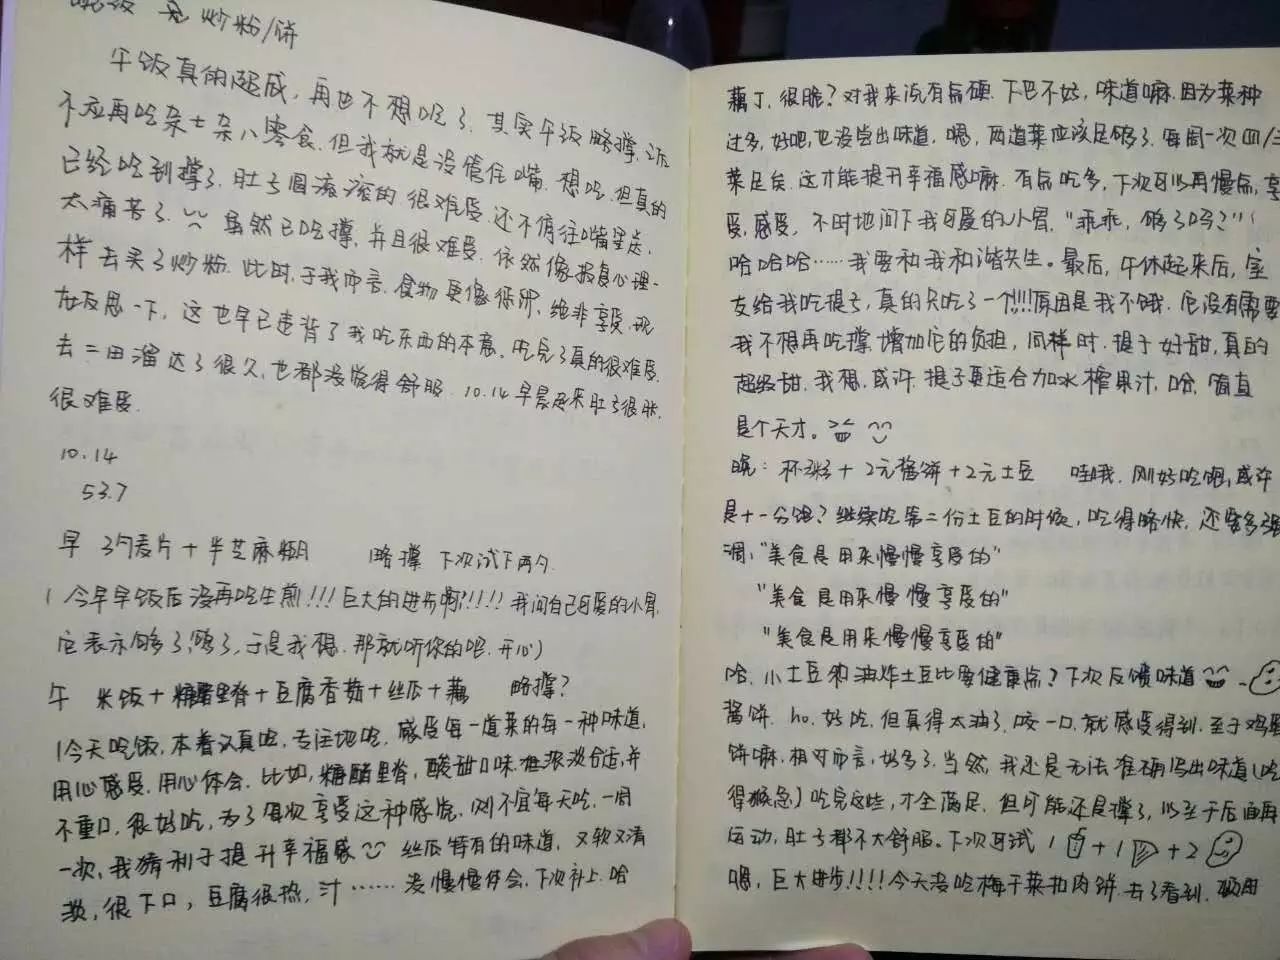 晚饭 无 炒粉/饼
午饭真的超咸，再也不想吃了。其实午饭略撑，
不应再吃杂七杂八零食，但我就是没管住嘴，想吃，但真的
已经吃到撑了，肚子圆滚滚的很难受，还不停往嘴里送，
太痛苦了。虽然已吃撑，并且很难受，依然像报复心理一
样去买了炒粉。此时，于我而言，食物更像，绝非享受，现
在反思一下，这也早已违背了我吃东西的本意。吃完了真的很难受，
去二田溜达了很久，也都没觉得舒服。10.14早晨起来肚子很胀，
很难受。
10.14
53.7
早 3勺麦片+半芝麻糊 略撑 下次试下两勺
(今早早饭后没再吃生煎!!!巨大的进步啊!!!!!我问自己可爱的小胃，
它表示够了，够了，于是我想，那就听你的吧，开心)
午 米饭+糖醋里脊+豆腐香菇+丝瓜+藕 略撑？
(今天吃饭，本着认真吃，专注地吃，感受每一道菜的每一种味道，
用心感受，用心体会。比如，糖醋里脊，酸甜口味，浓淡合适，并
不重口，很好吃，为了每次享受这种感觉，则不宜每天吃，一周
一次，我猜利于提升幸福感 丝瓜特有的味道，又软又清
淡，很下口，豆腐很热，汁……没慢慢体会，下次补上。哈
藕丁，很脆？对我来说有点硬，下巴不好，味道嘛，因为菜种
过多，好吧，也没尝出味道，嗯，两道菜应该足够了，每周一次四/三
菜足矣，这才能提升幸福感嘛。有点吃多，下次可以再慢点，享
受，感受，不时地问下我可爱的小胃，“乖乖，够了吗？”
哈哈哈……我要和我和谐共生。最后，午休起来后，室
友给我吃提子，真的只吃了一个!!!!原因是我不饿，它没有需要
我不想再吃撑，增加它的负担，同样时，提子好甜，真的
超级甜，我想，或许，提子更适合加水榨果汁，哈，简直
是个天才。
晚：杯粥+2元酱饼+2元土豆 哇哦，刚好吃饱，或许
是十一分饱？继续吃第二份土豆的时候，吃得略快，还要多强
调，“美食是用来慢慢享受的”
“美食是用来慢慢享受的”
“美食是用来慢慢享受的”
哈，小土豆和油炸土豆比要健康点？下次反馈味道
酱饼，ho，好吃，但真得太油了，咬一口，就感受得到，至于鸡蛋
饼嘛，相对而言，好多了，当然，我还是无法准确写出味道(吃
得猴急)吃完这些，才全满足，但可能还是撑了，以至于后面再
运动，肚子都不太舒服。下次可试 1 +1 +2
嗯，巨大进步!!!!今天没吃梅干菜扣肉饼，去了看到，